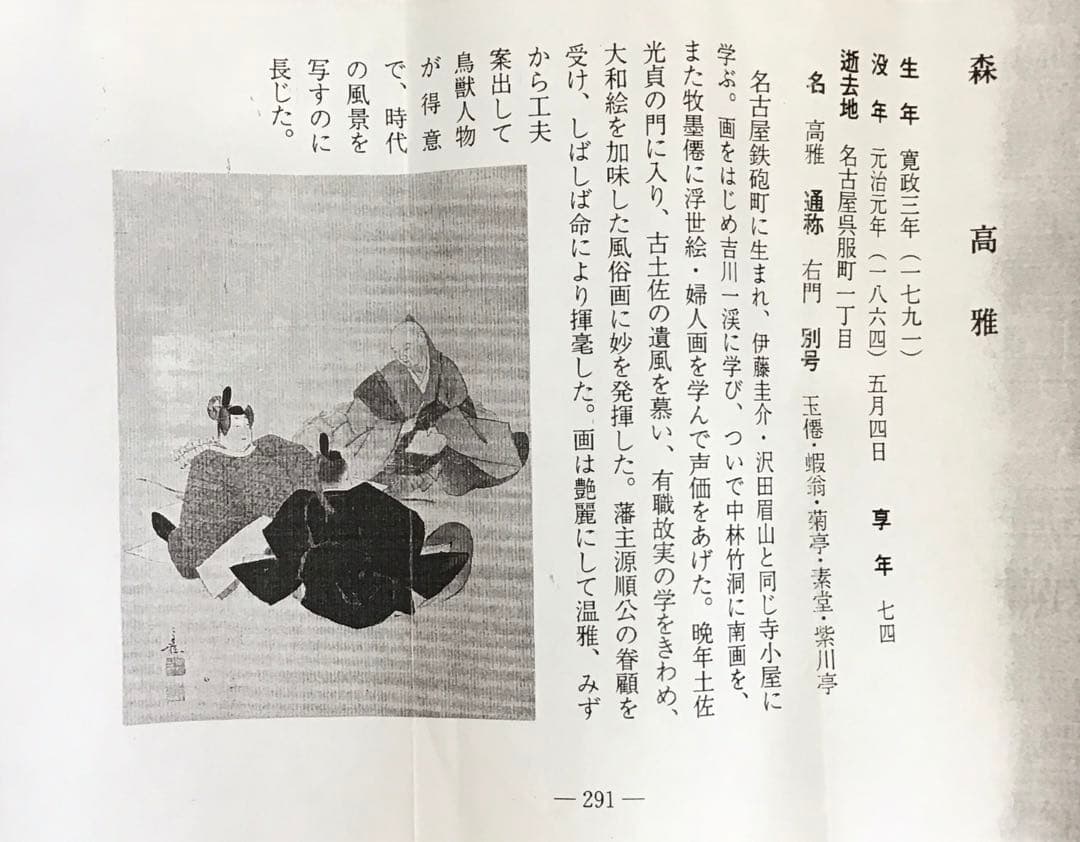 森 高雅
生年 寛政三年（一七九一）
没年 元治元年（一八六四）五月四日 享年 七四
逝去地 名古屋呉服町一丁目
名 高雅 通称 右門 別号 玉僊・蝦翁・菊亭・素堂・紫川亭
名古屋鉄砲町に生まれ、伊藤圭介・沢田眉山と同じ寺小屋に
学ぶ。画をはじめ吉川一渓に学び、ついで中林竹洞に南画を、
また牧墨僊に浮世絵・婦人画を学んで声価をあげた。晩年土佐
光貞の門に入り、古土佐の遺風を慕い、有職故実の学をきわめ、
大和絵を加味した風俗画に妙を発揮した。藩主源順公の眷顧を
受け、しばしば命により揮毫した。画は艶麗にして温雅、みず
から工夫
案出して
鳥獣人物
が得意
で、時代
の風景を
写すのに
長じた。
— 291 —